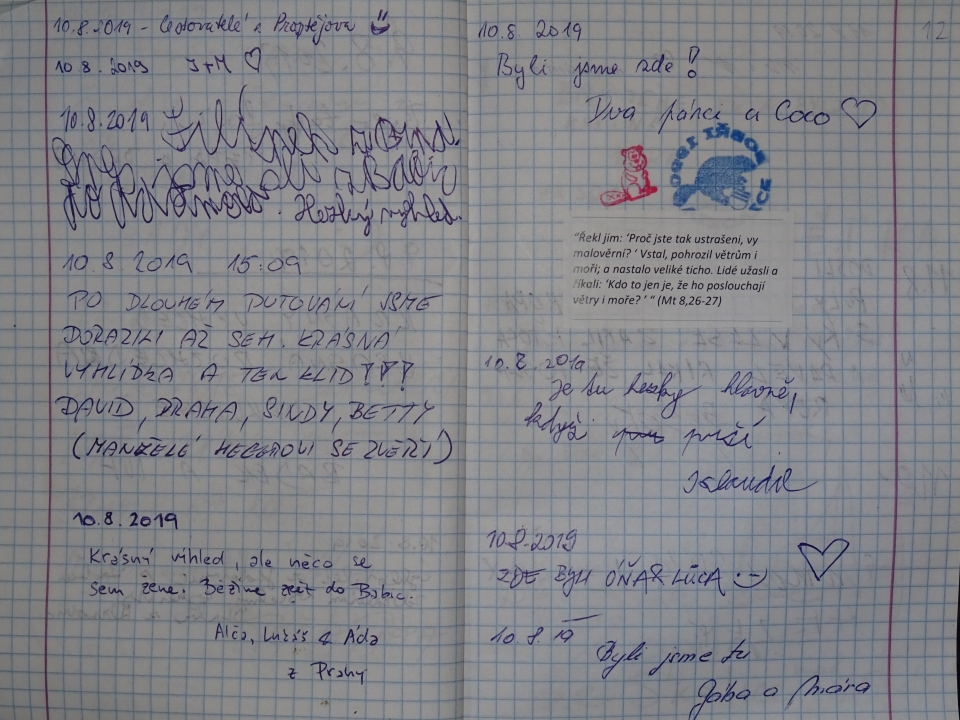 10.8.2019 - Cestovatelé z Prostějova
10.8.2019 J+M
10.8.2019
Hezký výhled.
10.8.2019 15:09
PO DLOUHÉM PUTOVÁNÍ JSME
DORAZILI AŽ SEM. KRÁSNÁ
VYHLÍDKA A TEN KLID!!!
DAVID, DRAHA, SINDY, BETTY
(MANŽELÉ SE ZVĚŘÍ)
10.8.2019
Krásný víhled, ale něco se
sem žene. Běžíme do Babic.
Alča, Lukáš & Áďa
z Prahy
12
10.8 2019
Byli jsme zde!
Dva párci a Coco
"Řekl jim: 'Proč jste tak ustrašeni, vy
malověrní? ' Vstal, pohrozil větrům i
moři; a nastalo veliké ticho. Lidé užasli a
říkali: 'Kdo to jen je, že ho poslouchají
větry i moře? ' " (Mt 8,26-27)
10.8.2019
Je tu hezky hlavně,
když prší
10.8.2019
ZDE BYLI OŇA & LUCA :-)
10.8.19
Byli jsme tu
Jába a Mára